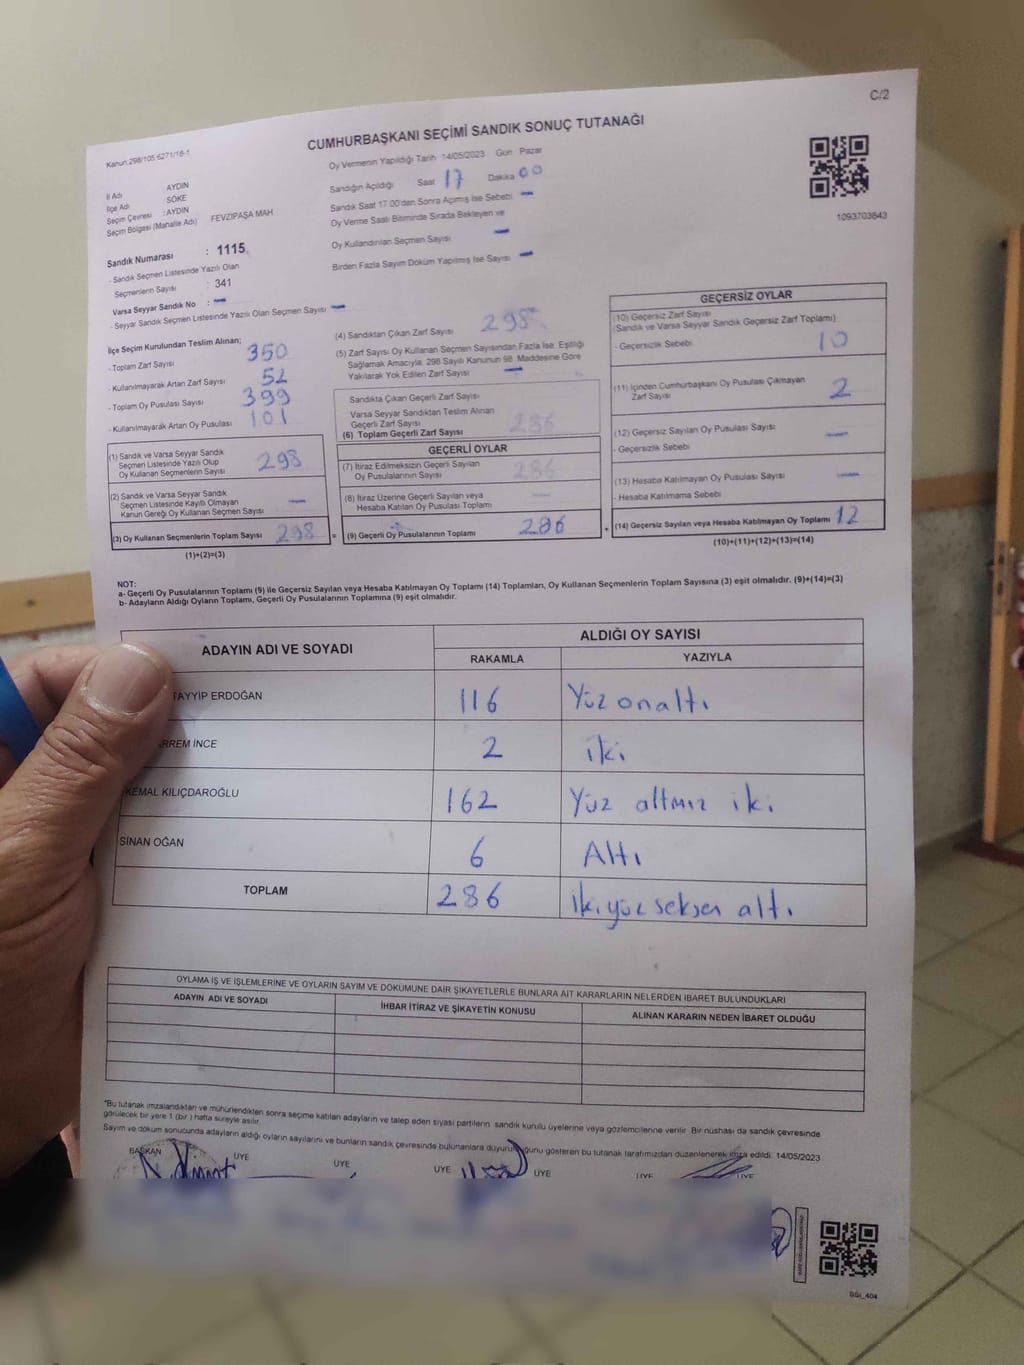 C/2
Kanun:298/105;6271/16-1
CUMHURBAŞKANI SEÇİMİ SANDIK SONUÇ TUTANAĞI
Oy Vermenin Yapıldığı Tarih 14/05/2023 Gün Pazar
İl Adı : AYDIN
İlçe Adı : SÖKE
Seçim Çevresi : AYDIN
Seçim Bölgesi (Mahalle Adı) FEVZİPAŞA MAH.
Sandığın Açıldığı Saat 17 Dakika 00
Sandık Saat 17:00'dan Sonra Açılmış İse Sebebi —
Oy Verme Saati Bitiminde Sırada Bekleyen ve
Oy Kullandırılan Seçmen Sayısı —
Birden Fazla Sayım Döküm Yapılmış İse Sayısı —
1093703643
Sandık Numarası : 1115
- Sandık Seçmen Listesinde Yazılı Olan
Seçmenlerin Sayısı : 341
Varsa Seyyar Sandık No : —
- Seyyar Sandık Seçmen Listesinde Yazılı Olan Seçmen Sayısı —
İlçe Seçim Kurulundan Teslim Alınan;
- Toplam Zarf Sayısı 350
- Kullanılmayarak Artan Zarf Sayısı 52
- Toplam Oy Pusulası Sayısı 399
- Kullanılmayarak Artan Oy Pusulası 101
(1) Sandık ve Varsa Seyyar Sandık
Seçmen Listesinde Yazılı Olup
Oy Kullanan Seçmenlerin Sayısı 298
(2) Sandık ve Varsa Seyyar Sandık
Seçmen Listesinde Kayıtlı Olmayan
Kanun Gereği Oy Kullanan Seçmen Sayısı —
(3) Oy Kullanan Seçmenlerin Toplam Sayısı 298
(1)+(2)=(3)
(4) Sandıktan Çıkan Zarf Sayısı 298
(5) Zarf Sayısı Oy Kullanan Seçmen Sayısından Fazla İse; Eşitliği
Sağlamak Amacıyla; 298 Sayılı Kanunun 98. Maddesine Göre
Yakılarak Yok Edilen Zarf Sayısı —
Sandıkta Çıkan Geçerli Zarf Sayısı
Varsa Seyyar Sandıktan Teslim Alınan
Geçerli Zarf Sayısı
(6) Toplam Geçerli Zarf Sayısı 286
GEÇERLİ OYLAR
(7) İtiraz Edilmeksizin Geçerli Sayılan
Oy Pusulasının Sayısı 286
(8) İtiraz Üzerine Geçerli Sayılan veya
Hesaba Katılan Oy Pusulası Toplamı —
= (9) Geçerli Oy Pusulalarının Toplamı 286
GEÇERSİZ OYLAR
(10) Geçersiz Zarf Sayısı
(Sandık ve Varsa Seyyar Sandık Geçersiz Zarf Toplamı)
- Geçersizlik Sebebi 10
(11) İçinden Cumhurbaşkanı Oy Pusulası Çıkmayan
Zarf Sayısı 2
(12) Geçersiz Sayılan Oy Pusulası Sayısı —
- Geçersizlik Sebebi
(13) Hesaba Katılmayan Oy Pusulası Sayısı —
- Hesaba Katılmama Sebebi
+ (14) Geçersiz Sayılan veya Hesaba Katılmayan Oy Toplamı 12
(10)+(11)+(12)+(13)=(14)
NOT:
a- Geçerli Oy Pusulalarının Toplamı (9) ile Geçersiz Sayılan veya Hesaba Katılmayan Oy Toplamı (14) Toplamları, Oy Kullanan Seçmenlerin Toplam Sayısına (3) eşit olmalıdır. (9)+(14)=(3)
b- Adayların Aldığı Oyların Toplamı, Geçerli Oy Pusulalarının Toplamına (9) eşit olmalıdır.
ADAYIN ADI VE SOYADI
ALDIĞI OY SAYISI
RAKAMLA YAZIYLA
TAYYİP ERDOĞAN 116 Yüz onaltı
RREM İNCE 2 iki
KEMAL KILIÇDAROĞLU 162 Yüz altmış iki
SİNAN OĞAN 6 Altı
TOPLAM 286 ikiyüz seksen altı
OYLAMA İŞ VE İŞLEMLERİNE VE OYLARIN SAYIM VE DÖKÜMÜNE DAİR ŞİKAYETLERLE BUNLARA AİT KARARLARIN NELERDEN İBARET BULUNDUKLARI
ADAYIN ADI VE SOYADI İHBAR İTİRAZ VE ŞİKAYETİN KONUSU ALINAN KARARIN NEDEN İBARET OLDUĞU
*Bu tutanak imzalandıktan ve mühürlendikten sonra seçime katılan adayların ve talep eden siyasi partilerin sandık kurulu üyelerine veya gözlemcilerine verilir. Bir nüshası da sandık çevresinde
görülecek bir yere 1 (bir ) hafta süreyle asılır.
Sayım ve döküm sonucunda adayların aldığı oyların sayılarını ve bunların sandık çevresinde bulunanlara duyurulduğunu gösteren bu tutanak tarafımızdan düzenlenerek imza edildi. 14/05/2023
BAŞKAN ÜYE ÜYE ÜYE ÜYE ÜYE ÜYE
BSI_404